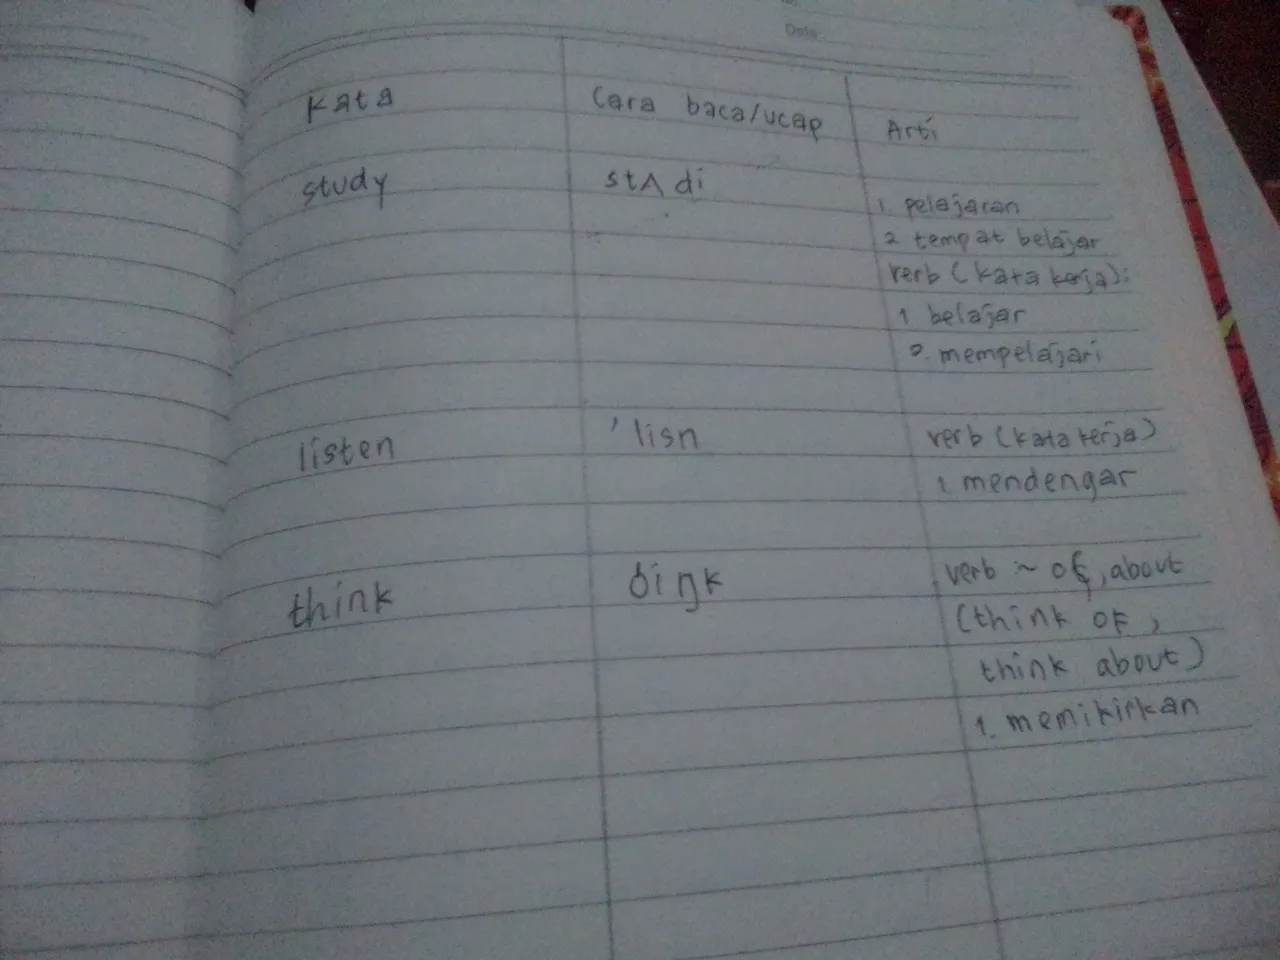 Date:
Kata
Cara baca/ucap
Arti
study
stʌ di
1. pelajaran
2 tempat belajar
verb (kata kerja):
1 belajar
2. mempelajari
listen
'lisn
verb (kata kerja)
1. mendengar
think
ðiŋk
verb ~ of, about
(think of,
think about)
1. memikirkan